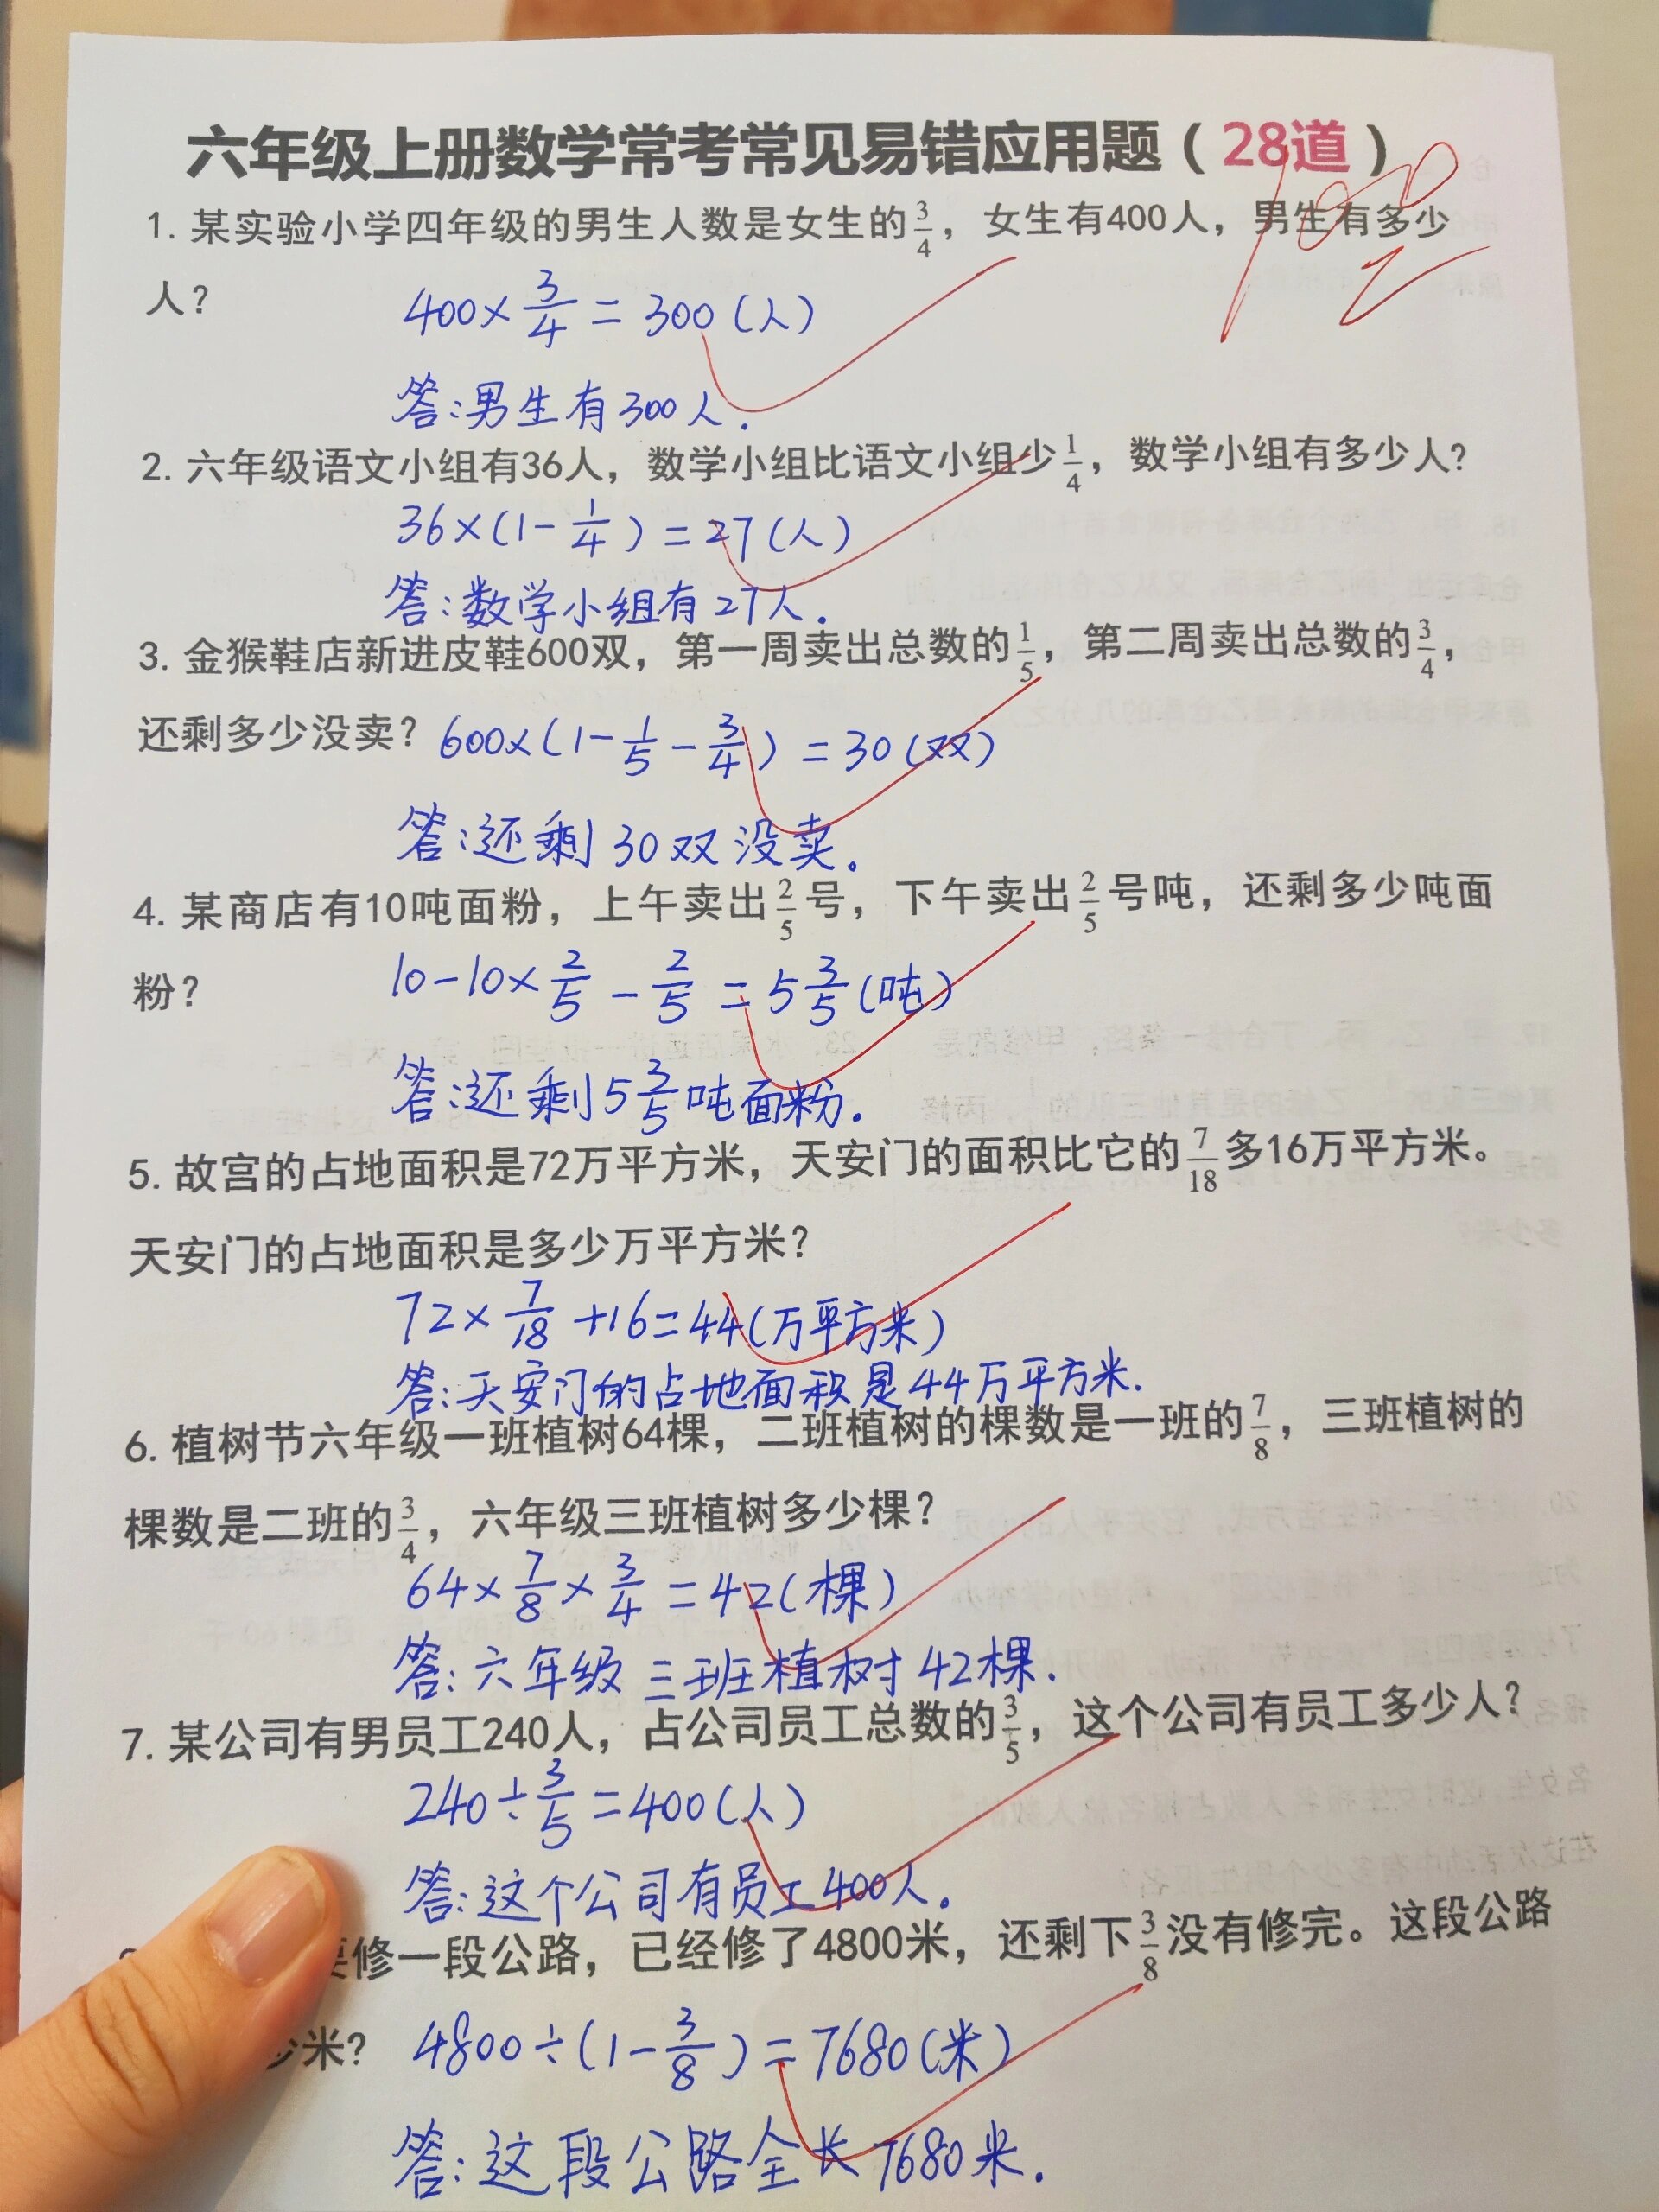 六年级上册数学常考常见易错应用题（28道）
100
1. 某实验小学四年级的男生人数是女生的3/4，女生有400人，男生有多少
人？
400×3/4＝300（人）
答：男生有300人．
2. 六年级语文小组有36人，数学小组比语文小组少1/4，数学小组有多少人？
36×（1－1/4）＝27（人）
答：数学小组有27人．
3. 金猴鞋店新进皮鞋600双，第一周卖出总数的1/5，第二周卖出总数的3/4，
还剩多少没卖？ 600×（1－1/5－3/4）＝30（双）
答：还剩30双没卖。
4. 某商店有10吨面粉，上午卖出2/5号，下午卖出2/5号吨，还剩多少吨面
粉？ 10－10×2/5－2/5＝5 3/5（吨）
答：还剩5 3/5吨面粉．
5. 故宫的占地面积是72万平方米，天安门的面积比它的7/18多16万平方米。
天安门的占地面积是多少万平方米？
72×7/18＋16＝44（万平方米）
答：天安门的占地面积是44万平方米．
6. 植树节六年级一班植树64棵，二班植树的棵数是一班的7/8，三班植树的
棵数是二班的3/4，六年级三班植树多少棵？
64×7/8×3/4＝42（棵）
答：六年级三班植树42棵．
7. 某公司有男员工240人，占公司员工总数的3/5，这个公司有员工多少人？
240÷3/5＝400（人）
答：这个公司有员工400人．
要修一段公路，已经修了4800米，还剩下3/8没有修完。这段公路
少米？ 4800÷（1－3/8）＝7680（米）
答：这段公路全长7680米．